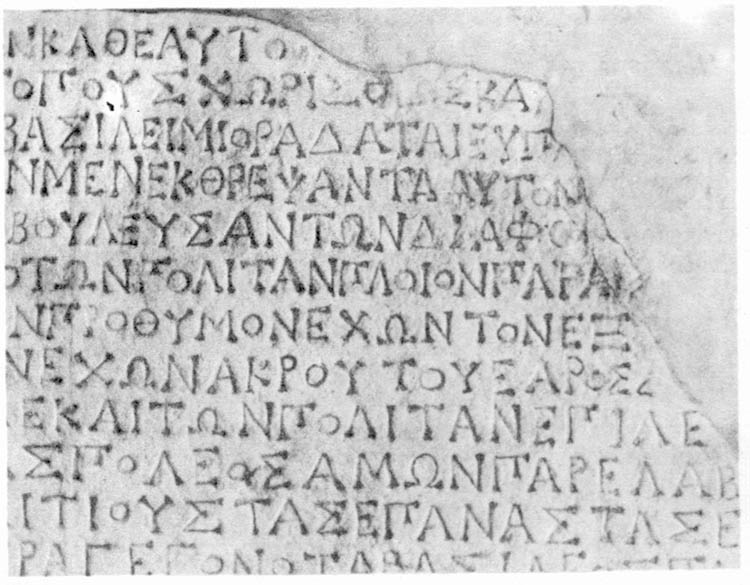 ΝΚΑΘΕΑΥΤΟ
ΤΟΠΟΥΣΧΩΡΙΣΘ ΣΚΑ
ΒΑΣΙΛΕΙΜΙΘΡΑΔΑΤΑΙΕΥΠ
ΝΜΕΝΕΚΘΡΕΨΑΝΤΑΑΥΤΟΝ
ΒΟΥΛΕΥΣΑΝΤΩΝΔΙΑΦΟ
ΟΤΩΝΠΟΛΙΤΑΝΠΛΟΙΟΝΠΑΡΑΚ
ΝΠΡΟΘΥΜΟΝΕΧΩΝΤΟΝΕΞ
ΝΕΧΩΝΑΚΡΟΥΤΟΥΕΑΡΟΣ
ΕΚΑΙΤΩΝΠΟΛΙΤΑΝΕΠΙΛΕ
ΑΣΠΟΛΕΟΣΑΜΩΝΠΑΡΕΛΑΒ
ΑΙΤΙΟΥΣΤΑΣΕΠΑΝΑΣΤΑΣΕ
ΡΑΓΕΓΟΝΟΤΑΒΑΣΙΛΕ